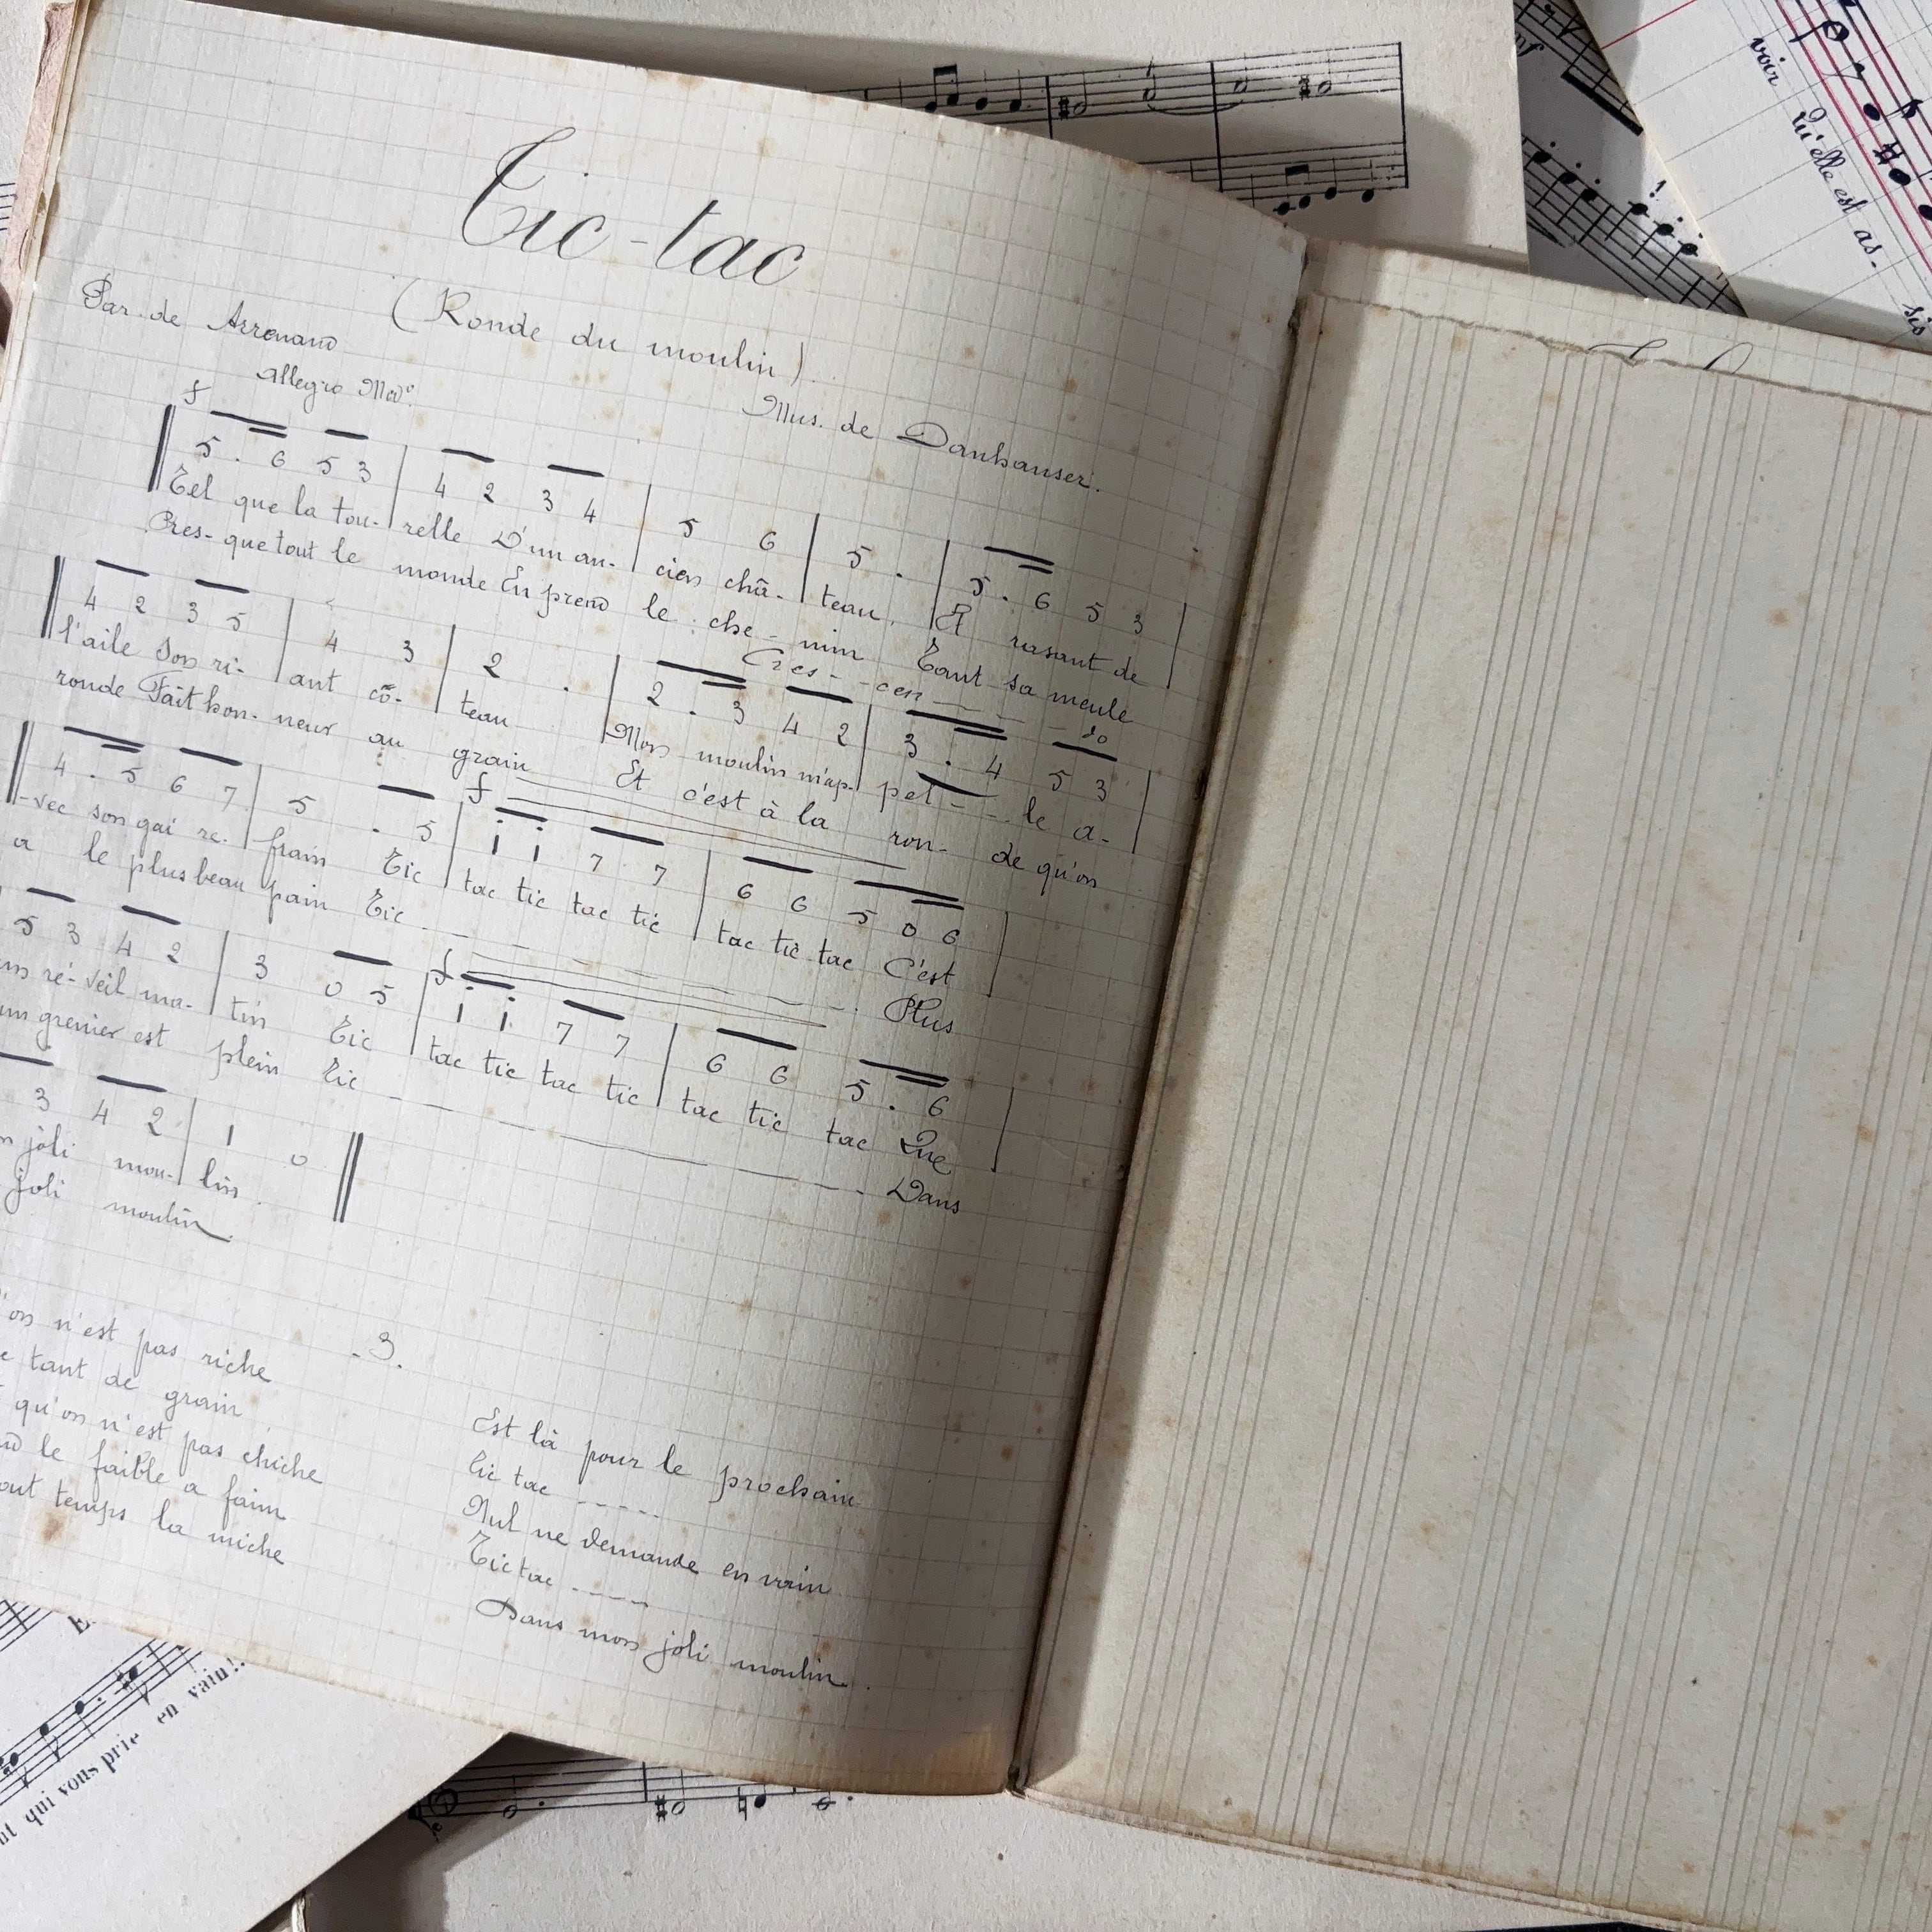 Tic-tac
(Ronde du moulin).
Par. de Arrenaud
Mus. de Danhauser.
Allegro Modº
f
5 . 6 5 3 | 4 2 3 4 | 5 6 | 5 . | 5 . 6 5 3 |
Tel que la tou- relle D'un an- cien châ- teau. Et rasant de
Pres- que tout le monde En prend le che- min Tant sa meule
Cres - - cen - - - - do
4 2 3 5 | 4 3 | 2 . | 2 . 3 4 2 | 3 . 4 5 3 |
l'aile Son ri- ant cô- teau Mon moulin m'ap- pel - - le a-
ronde Fait hon- neur au grain Et c'est à la ron- de qu'on
f
4 . 5 6 7 | 5 . 5 | i i 7 7 | 6 6 5 0 6 |
-vec son gai re- frain Tic tac tic tac tic tac tic tac C'est
a le plus beau pain Tic - - - - Plus
f
5 3 4 2 | 3 0 5 | i i 7 7 | 6 6 5 . 6 |
ré-veil ma- tin Tic tac tic tac tic tac tic tac Que
grenier est plein Tic - - - - Dans
3 4 2 | 1 0 ||
joli mou- lin.
joli moulin.
- 3.
'on n'est pas riche
tant de grain
qu'on n'est pas chiche
le faible a faim
temps la miche
Est là pour le prochain
tic tac - - - -
Nul ne demande en vain
Tic tac - - - -
Dans mon joli moulin.
voir qu'elle est as-
sis
qui vous prie en vain!..